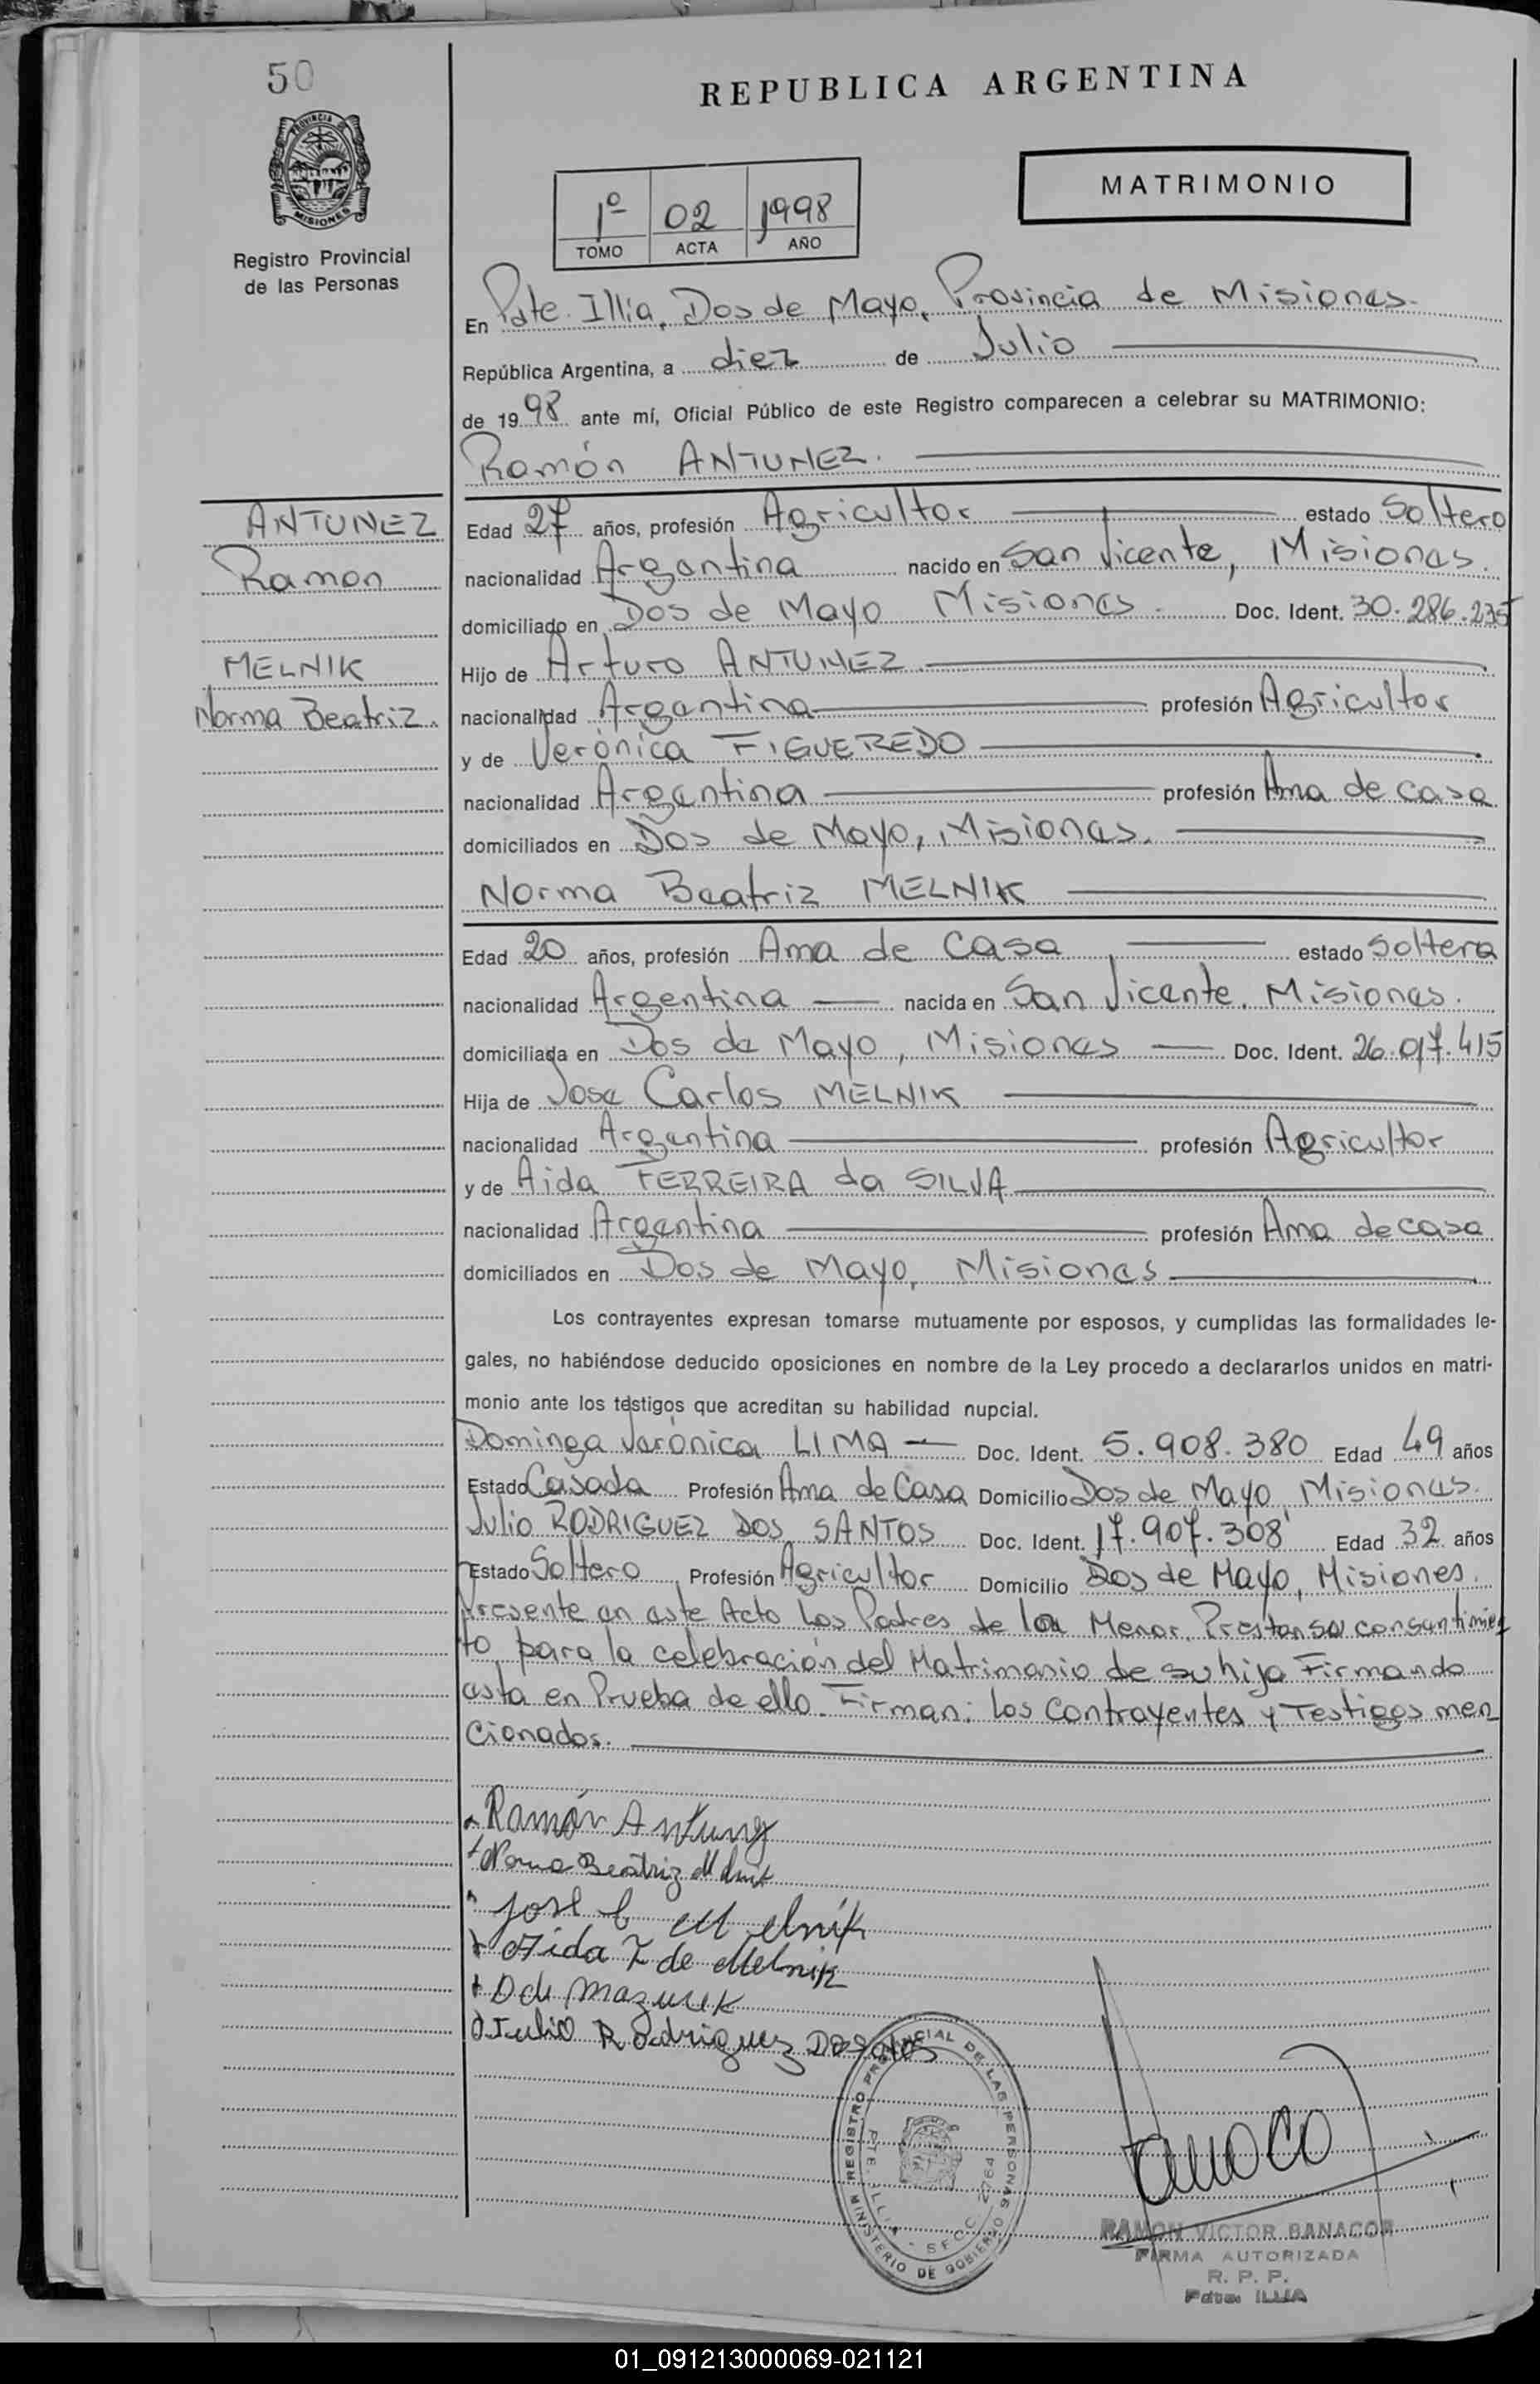 50
PROVINCIA
MISIONES
Registro Provincial
de las Personas
REPUBLICA ARGENTINA
1º 02 1998
TOMO ACTA AÑO
MATRIMONIO
En Pdte. Illia, Dos de Mayo, Provincia de Misiones.
República Argentina, a diez de Julio
de 1998 ante mí, Oficial Público de este Registro comparecen a celebrar su MATRIMONIO:
Ramón ANTUNEZ.
ANTUNEZ
Ramon
MELNIK
Norma Beatriz.
Edad 27 años, profesión Agricultor estado Soltero
nacionalidad Argentina nacido en San Vicente, Misiones.
domiciliado en Dos de Mayo Misiones. Doc. Ident. 30.286.235
Hijo de Arturo ANTUNEZ
nacionalidad Argentina profesión Agricultor
y de Verónica FIGUEREDO
nacionalidad Argentina profesión Ama de casa
domiciliados en Dos de Mayo, Misiones.
Norma Beatriz MELNIK
Edad 20 años, profesión Ama de Casa estado Soltera
nacionalidad Argentina nacida en San Vicente. Misiones.
domiciliada en Dos de Mayo, Misiones Doc. Ident. 26.017.415
Hija de Jose Carlos MELNIK
nacionalidad Argentina profesión Agricultor
y de Aida FERREIRA da SILVA
nacionalidad Argentina profesión Ama de casa
domiciliados en Dos de Mayo, Misiones
Los contrayentes expresan tomarse mutuamente por esposos, y cumplidas las formalidades le-
gales, no habiéndose deducido oposiciones en nombre de la Ley procedo a declararlos unidos en matri-
monio ante los testigos que acreditan su habilidad nupcial.
Dominga Verónica LIMA Doc. Ident. 5.908.380 Edad 49 años
Estado Casada Profesión Ama de Casa Domicilio Dos de Mayo, Misiones.
Julio RODRIGUEZ DOS SANTOS Doc. Ident. 17.907.308 Edad 32 años
Estado Soltero Profesión Agricultor Domicilio Dos de Mayo, Misiones.
Presente en este Acto Los Padres de la Menor. Prestan su consentimien
to para la celebración del Matrimonio de su hija Firmando
esta en Prueba de ello. Firman: los Contrayentes y Testigos men
cionados.
Ramón Antunez
Norma Beatriz Melnik
José C Melnik
Aida F de Melnik
D de Mazurek
Julio Rodriguez Dos Santos
REGISTRO PROVINCIAL DE LAS PERSONAS
MINISTERIO DE GOBIERNO
PTE. ILLIA - SECC. 2764
RAMON VICTOR BANACOR
FIRMA AUTORIZADA
R. P. P.
Pdte. ILLIA
01_091213000069-021121